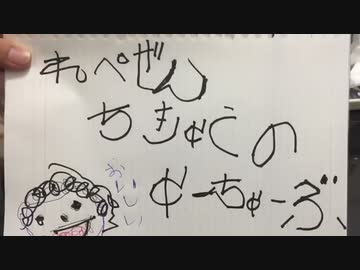 れぺぜん
ちきゅうの
ゆーちゅーぶ
おいしい